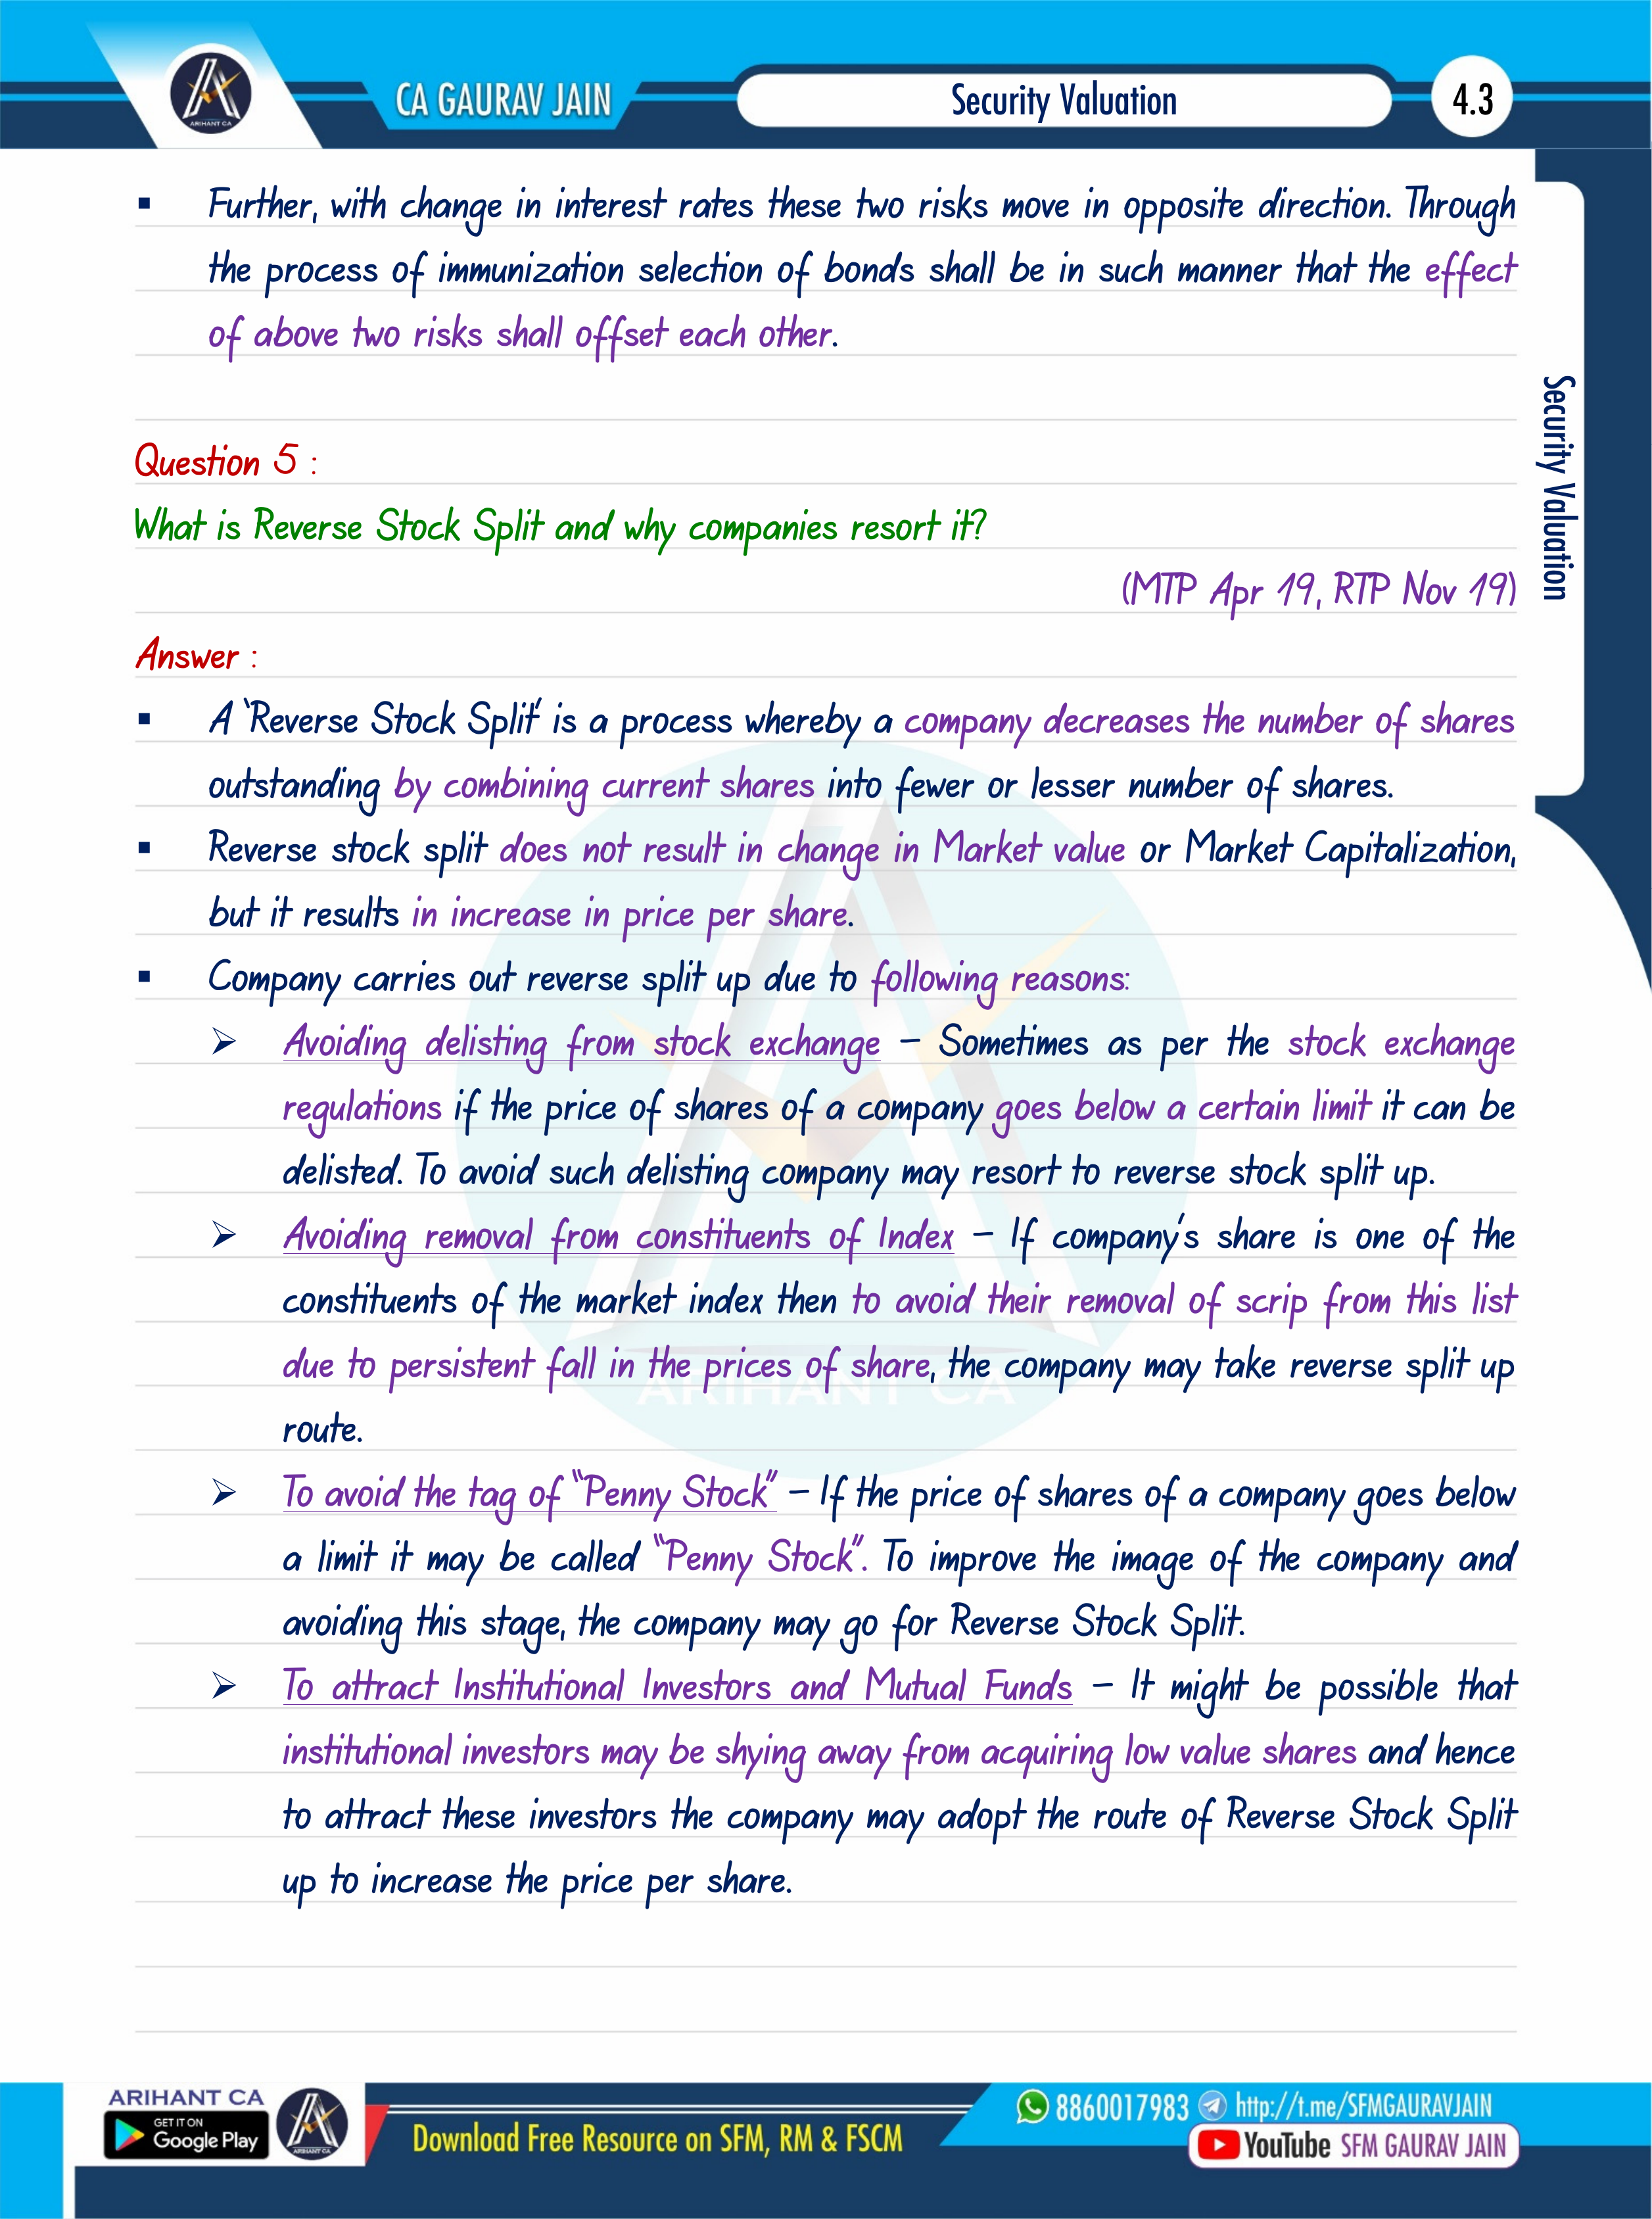 ARIHANT CA
CA GAURAV JAIN
Security Valuation
4.3
▪ Further, with change in interest rates these two risks move in opposite direction. Through
the process of immunization selection of bonds shall be in such manner that the effect
of above two risks shall offset each other.
Security Valuation
Question 5 :
What is Reverse Stock Split and why companies resort it?
(MTP Apr 19, RTP Nov 19)
Answer :
▪ A ‘Reverse Stock Split’ is a process whereby a company decreases the number of shares
outstanding by combining current shares into fewer or lesser number of shares.
▪ Reverse stock split does not result in change in Market value or Market Capitalization,
but it results in increase in price per share.
▪ Company carries out reverse split up due to following reasons:
➢ Avoiding delisting from stock exchange – Sometimes as per the stock exchange
regulations if the price of shares of a company goes below a certain limit it can be
delisted. To avoid such delisting company may resort to reverse stock split up.
➢ Avoiding removal from constituents of Index – If company’s share is one of the
constituents of the market index then to avoid their removal of scrip from this list
due to persistent fall in the prices of share, the company may take reverse split up
route.
ARIHANT CA
➢ To avoid the tag of “Penny Stock” – If the price of shares of a company goes below
a limit it may be called “Penny Stock”. To improve the image of the company and
avoiding this stage, the company may go for Reverse Stock Split.
➢ To attract Institutional Investors and Mutual Funds – It might be possible that
institutional investors may be shying away from acquiring low value shares and hence
to attract these investors the company may adopt the route of Reverse Stock Split
up to increase the price per share.
ARIHANT CA
GET IT ON
Google Play
ARIHANT CA
Download Free Resource on SFM, RM & FSCM
8860017983 http://t.me/SFMGAURAVJAIN
YouTube SFM GAURAV JAIN